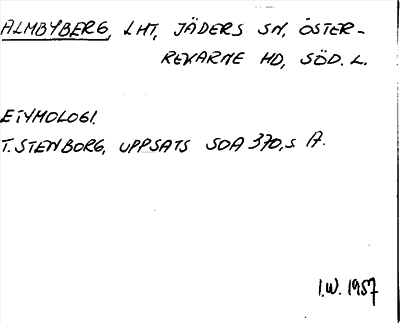 ALMBYBERG, LHT, JÄDERS SN, ÖSTER-
REKARNE HD, SÖD. L.
ETYMOLOGI.
T. STENBORG, UPPSATS SOA 370, S A.
I.W. 1957